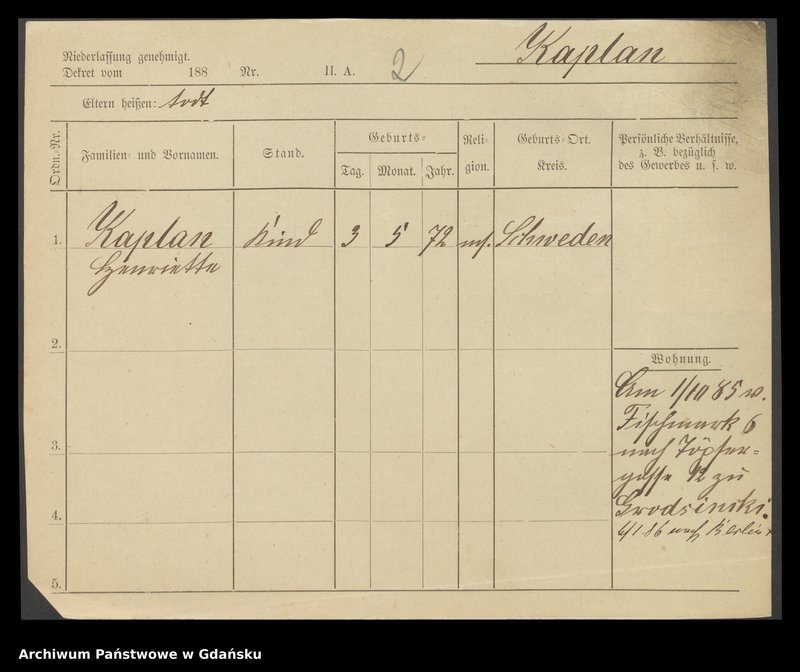 Kaplan
Niederlassung genehmigt.
Dekret vom 188 Nr. II. A. 2
Eltern heißen: todt
Ordn.-Nr.
Familien- und Vornamen.
Stand.
Geburts-
Tag. Monat. Jahr.
Reli-
gion.
Geburts-Ort.
Kreis.
Persönliche Verhältnisse,
z. B. bezüglich
des Gewerbes u. s. w.
1. Kaplan Kind 3 5 72 mos. Schweden
Henriette
2.
Wohnung.
Am 1/10 85 v.
Fischmark 6
nach Töpfer-
gasse 12 zu
Grodsinski.
3.
4.
6/1 86 nach Berlin
5.
Archiwum Państwowe w Gdańsku